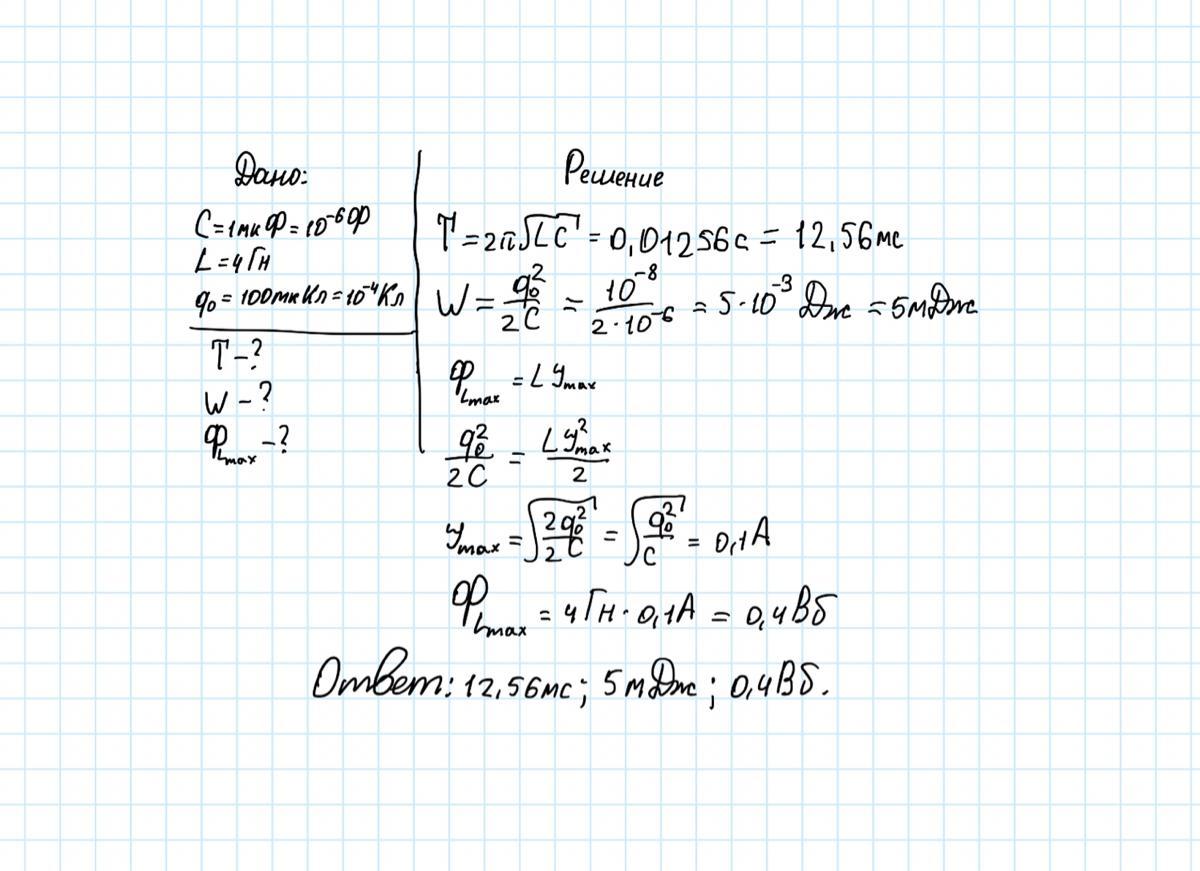 Дано:
C = 1мкФ = 10⁻⁶Ф
L = 4Гн
q₀ = 100мкКл = 10⁻⁴Кл
T - ?
W - ?
Ф_Lmax - ?
Решение
T = 2π√LC = 0,01256с = 12,56мс
W = q₀²/2C = 10⁻⁸/2·10⁻⁶ = 5·10⁻³ Дж = 5мДж
Ф_Lmax = L У_max
q₀²/2C = L У²_max/2
У_max = √2q₀²/2C = √q₀²/C = 0,1А
Ф_Lmax = 4Гн · 0,1А = 0,4Вб
Ответ: 12,56мс; 5мДж; 0,4Вб.